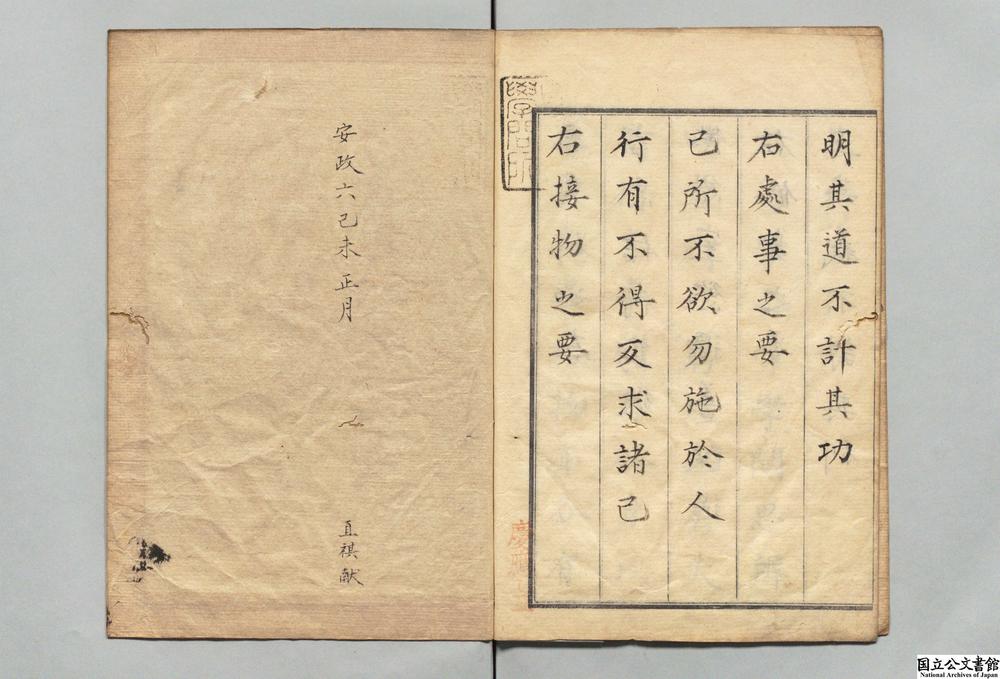 明其道不計其功
右處事之要
己所不欲勿施於人
行有不得反求諸己
右接物之要
安政六己未正月
直祺献
国立公文書館
National Archives of Japan